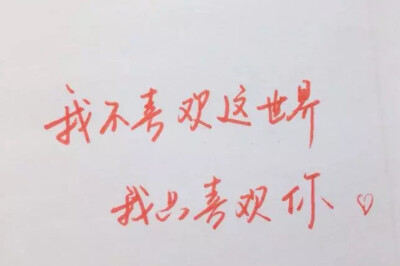 我不喜欢这世界
我只喜欢你♡